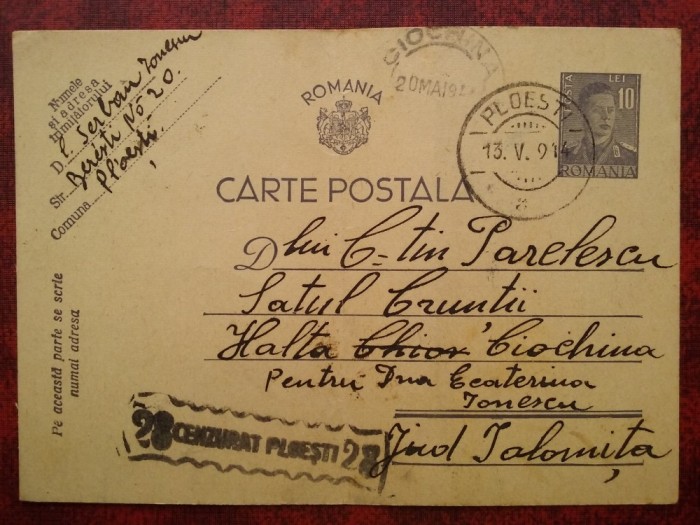 Numele
și adresa
trimițătorului
D. C. Șerban Ionescu
Str. Berești No 20
Comuna Ploești
Pe această parte se scrie
numai adresa
CIOCHINA
20 MAI 94
ROMANIA
CARTE POSTALA
POSTA LEI
10
ROMANIA
PLOESTI
13. V. 914
Dlui C-tin Parelescu
Satul Cruntii
Halta Chior Ciochina
Pentru Dna Ecaterina
Ionescu
Jud Ialomița
28 CENZURAT PLOEȘTI 28